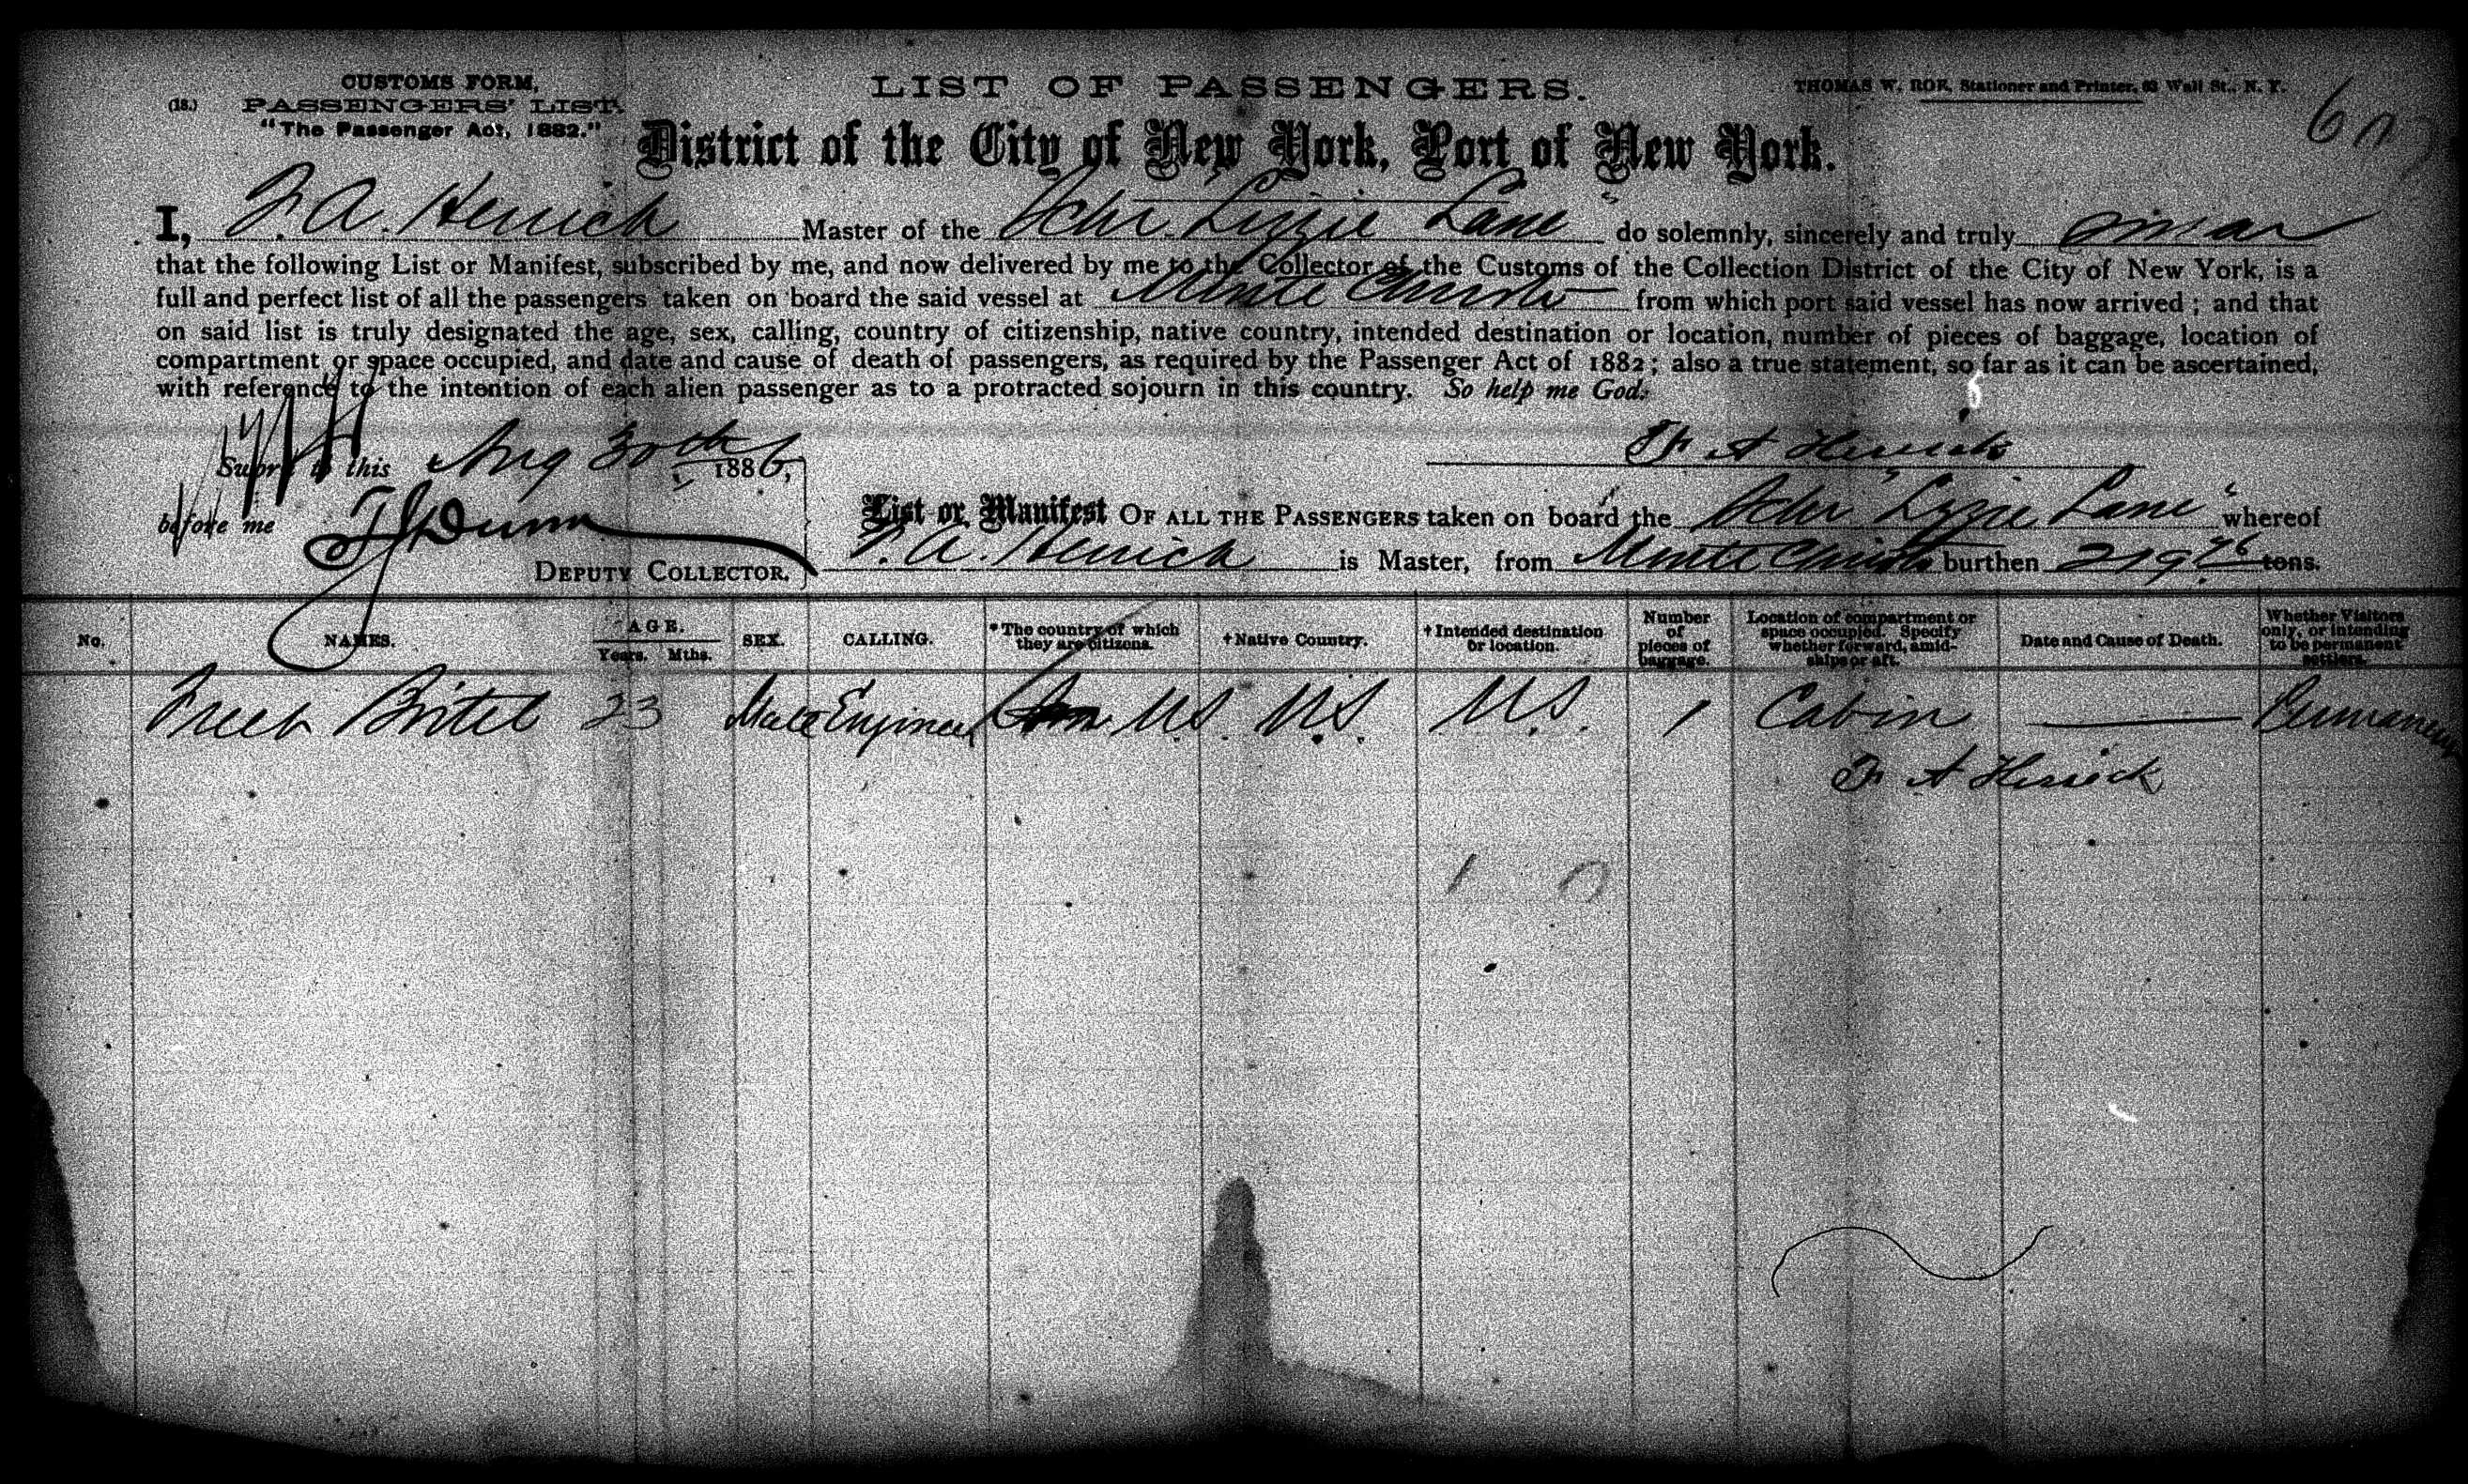 CUSTOMS FORM,
(18.) PASSENGERS' LIST.
"The Passenger Act, 1882."
LIST OF PASSENGERS.
THOMAS W. ROE, Stationer and Printer, 63 Wall St., N. Y.
District of the City of New York, Port of New York.
I, F. A. Herrick Master of the Schr. "Lizzie Lane" do solemnly, sincerely and truly swear
that the following List or Manifest, subscribed by me, and now delivered by me to the Collector of the Customs of the Collection District of the City of New York, is a
full and perfect list of all the passengers taken on board the said vessel at Monte Christo from which port said vessel has now arrived; and that
on said list is truly designated the age, sex, calling, country of citizenship, native country, intended destination or location, number of pieces of baggage, location of
compartment or space occupied, and date and cause of death of passengers, as required by the Passenger Act of 1882; also a true statement, so far as it can be ascertained,
with reference to the intention of each alien passenger as to a protracted sojourn in this country. So help me God.
to this Aug 30th 1886, F. A. Herrick
before me Dunn
DEPUTY COLLECTOR.
List or Manifest OF ALL THE PASSENGERS taken on board the Schr "Lizzie Lane" whereof
F. A. Herrick is Master, from Monte Christo burthen 219 76 tons.
No. NAMES. AGE. Years. Mths. SEX. CALLING. *The country of which they are citizens. †Native Country. †Intended destination or location. Number of pieces of baggage. Location of compartment or space occupied. Specify whether forward, amidships or aft. Date and Cause of Death. Whether Visitors only, or intending to be permanent settlers.
23 Male Engineer U.S. U.S. U.S. 1 Cabin Permanent
F. A. Herrick
1 0